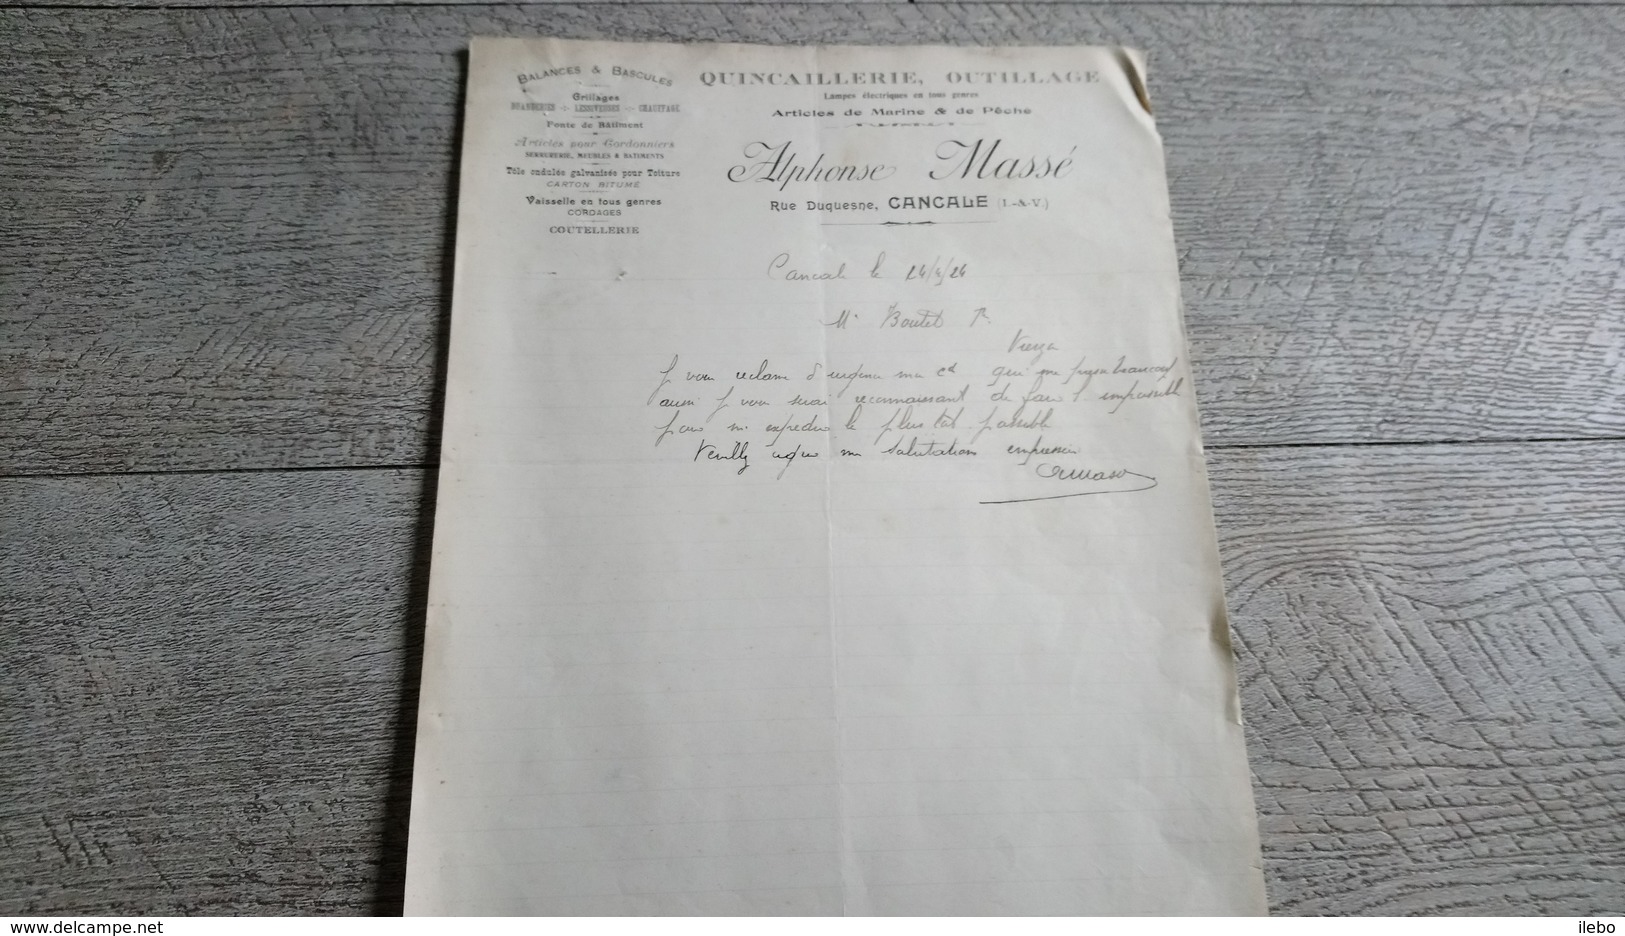 BALANCES & BASCULES
Grillages
BUANDERIES -:- LESSIVEUSES -:- CHAUFFAGE
Fonte de Bâtiment
Articles pour Cordonniers
SERRURERIE, MEUBLES & BATIMENTS
Tôle ondulée galvanisée pour Toiture
CARTON BITUMÉ
Vaisselle en tous genres
CORDAGES
COUTELLERIE
QUINCAILLERIE, OUTILLAGE
Lampes électriques en tous genres
Articles de Marine & de Pêche
Alphonse Massé
Rue Duquesne, CANCALE (I.-&-V.)
Cancale le 24/4/24
Mr Boutet
J vous réclame d'urgence ma cde qui me presse beaucoup
aussi J vous serai reconnaissant de faire l'impossible
pour m expedier le plus tôt possible
Veuillez agréer mes salutations empressées
AMassé
ilebo